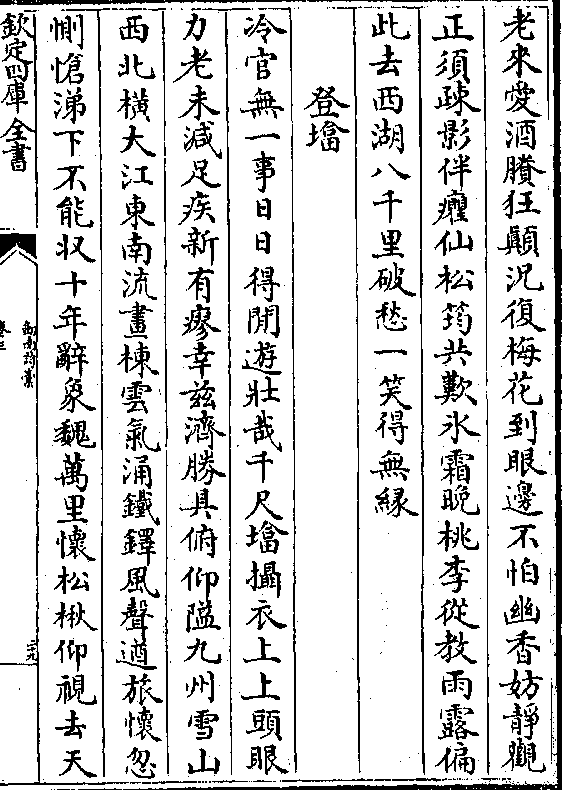 老來愛酒賸狂顛況復梅花到眼邊不怕幽香妨靜觀
正須疎影伴癯仙松筠共歎氷霜晚桃李從教雨露偏
此去西湖八千里破愁一笑得無緣
登㙮
冷官無一事日日得閒遊壯哉千尺㙮攝衣上上頭眼
力老未減足疾新有瘳幸兹濟勝具俯仰隘九州雪山
西北橫大江東南流畫棟雲氣涌鐵鐸風聲遒旅懷忽
惻愴涕下不能收十年辭象魏萬里懷松楸仰視去天
欽定四庫全書
劍南詩藁
卷三
二十九